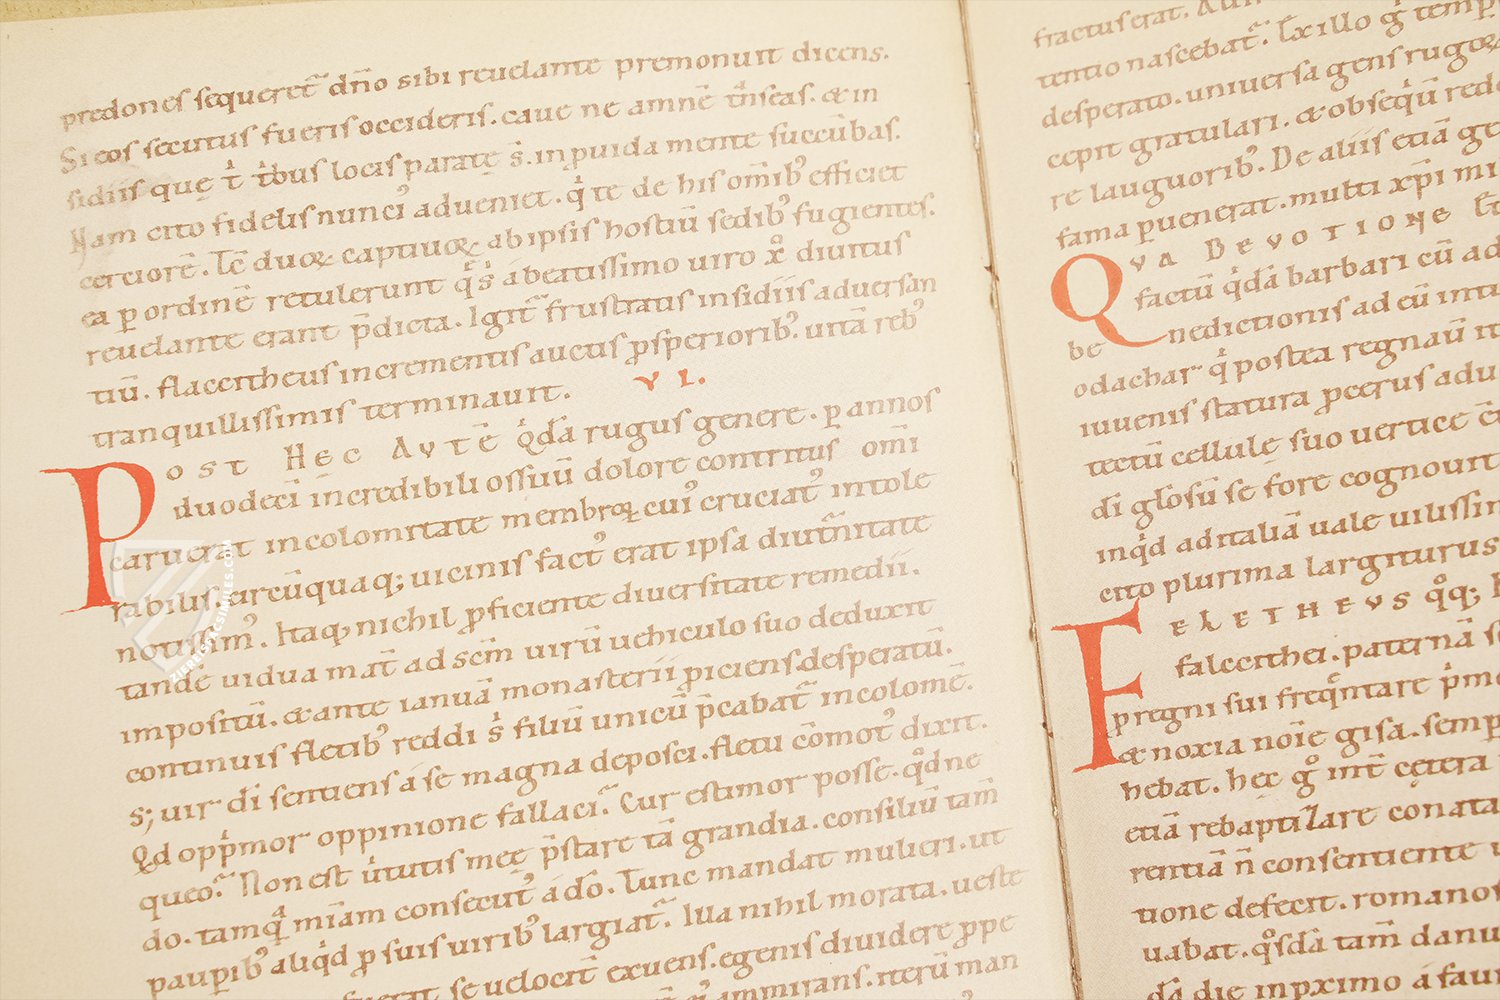 predones sequeret̄ dn̄o sibi reuelante premonuit dicens.
Si eos secutus fueris occideris. caue ne amnē tnseas. & in
sidiis que t tbus locis parate s. in puida mente succūbas.
Nam cito fidelis nunci' adueniet. q te de his om̄ib' efficiet
certiorē. Tc̄ duo captiuoꝝ ab ipsis hostiū sedib' fugientes.
ea p ordinē retulerunt q s a beatissimo uiro x diuitus
reuelante erant p̄dicta. Igit frustratis insidiis aduersan
tiū. flaccitheus incrementis auctis psperiorib'. uitā reb'
tranquillissimis terminauit. VI.
POST HEC AVTĒ qda rugus genere. p annos
duodeci incredibili ossiū dolore contritus om̄i
caruerat incolomitate membroꝝ cui' cruciat' intole
rabilis circūquaq; uicinis fact' erat ipsa diutnitate
notissim'. Itaq; nichil pficiente diuersitate remedii.
tande uidua mat̄ ad scm̄ uirū uehiculo suo deduxit
impositū. & ante ianuā monasterii piciens desperatū.
continuis fletib' reddi s filiū unicū p̄cabat̄ incolomē.
s; uir di sentiens a se magna deposci. fletu cōmot' dixit.
Qd oppmor oppinione fallaci. Cur estimor posse. qd ne
queo. Non est ututis mee p̄stare tā grandia. consiliū tam̄
do. tamq miam consecut' a do. Tunc mandat mulieri. ut
paupib' aliqd p suis uirib' largiat̄. Illa nihil morata. ueste
se uelocit̄ exuens. egenis diuidere ppe
ammirans. iterū man
fractus erat.
tentio nascebat̄. Ex illo g temp
desperato. uniuersa gens rugoꝝ
cepit gratulari. & obseqū redd
re lauguorib'. De aliis etiā ge
fama puenerat. multi xp̄i mi
QVA DEVOTIONE
factū qda barbari cū ad
be nedictionis ad eū intu
odachar q postea regnau it
iuuenis statura pcerus adu
tectū cellule suo uertice
di glosū se fore cognouit
inqd ad italiā uale uilissim
cito plurima largiturus
FELETHEVS qq;
falccithei. paternā s
p regni sui freqntare p̄mo
& noxia noīe gisa. semp
hebat. hec g int̄ cętera
etiā rebaptizare conata
rentiā n̄ consentiente
tione defecit. romanos
uabat. qsda tam̄ danu
da die in pximo a fau